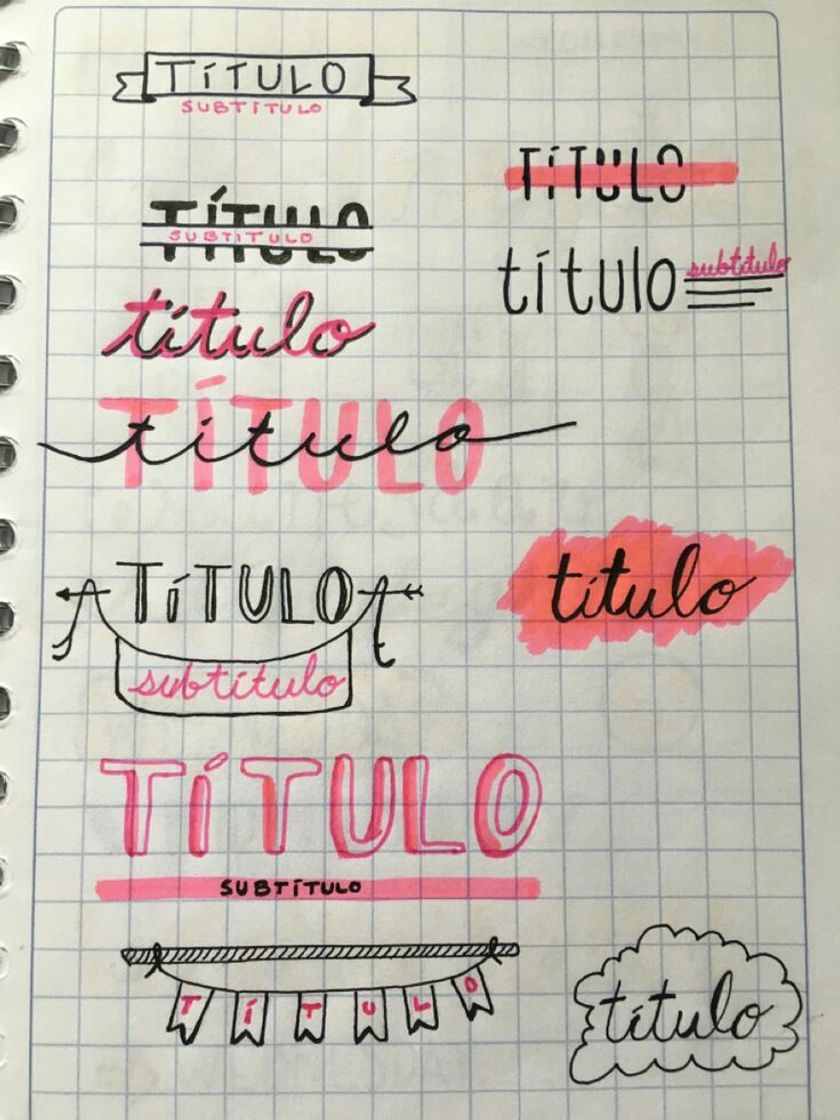 TÍTULO
SUBTÍTULO
TÍTULO
TÍTULO
SUBTITULO
título subtítulo
título
TÍTULO
título
TÍTULO
subtítulo
título
TÍTULO
SUBTÍTULO
TÍTULO
título